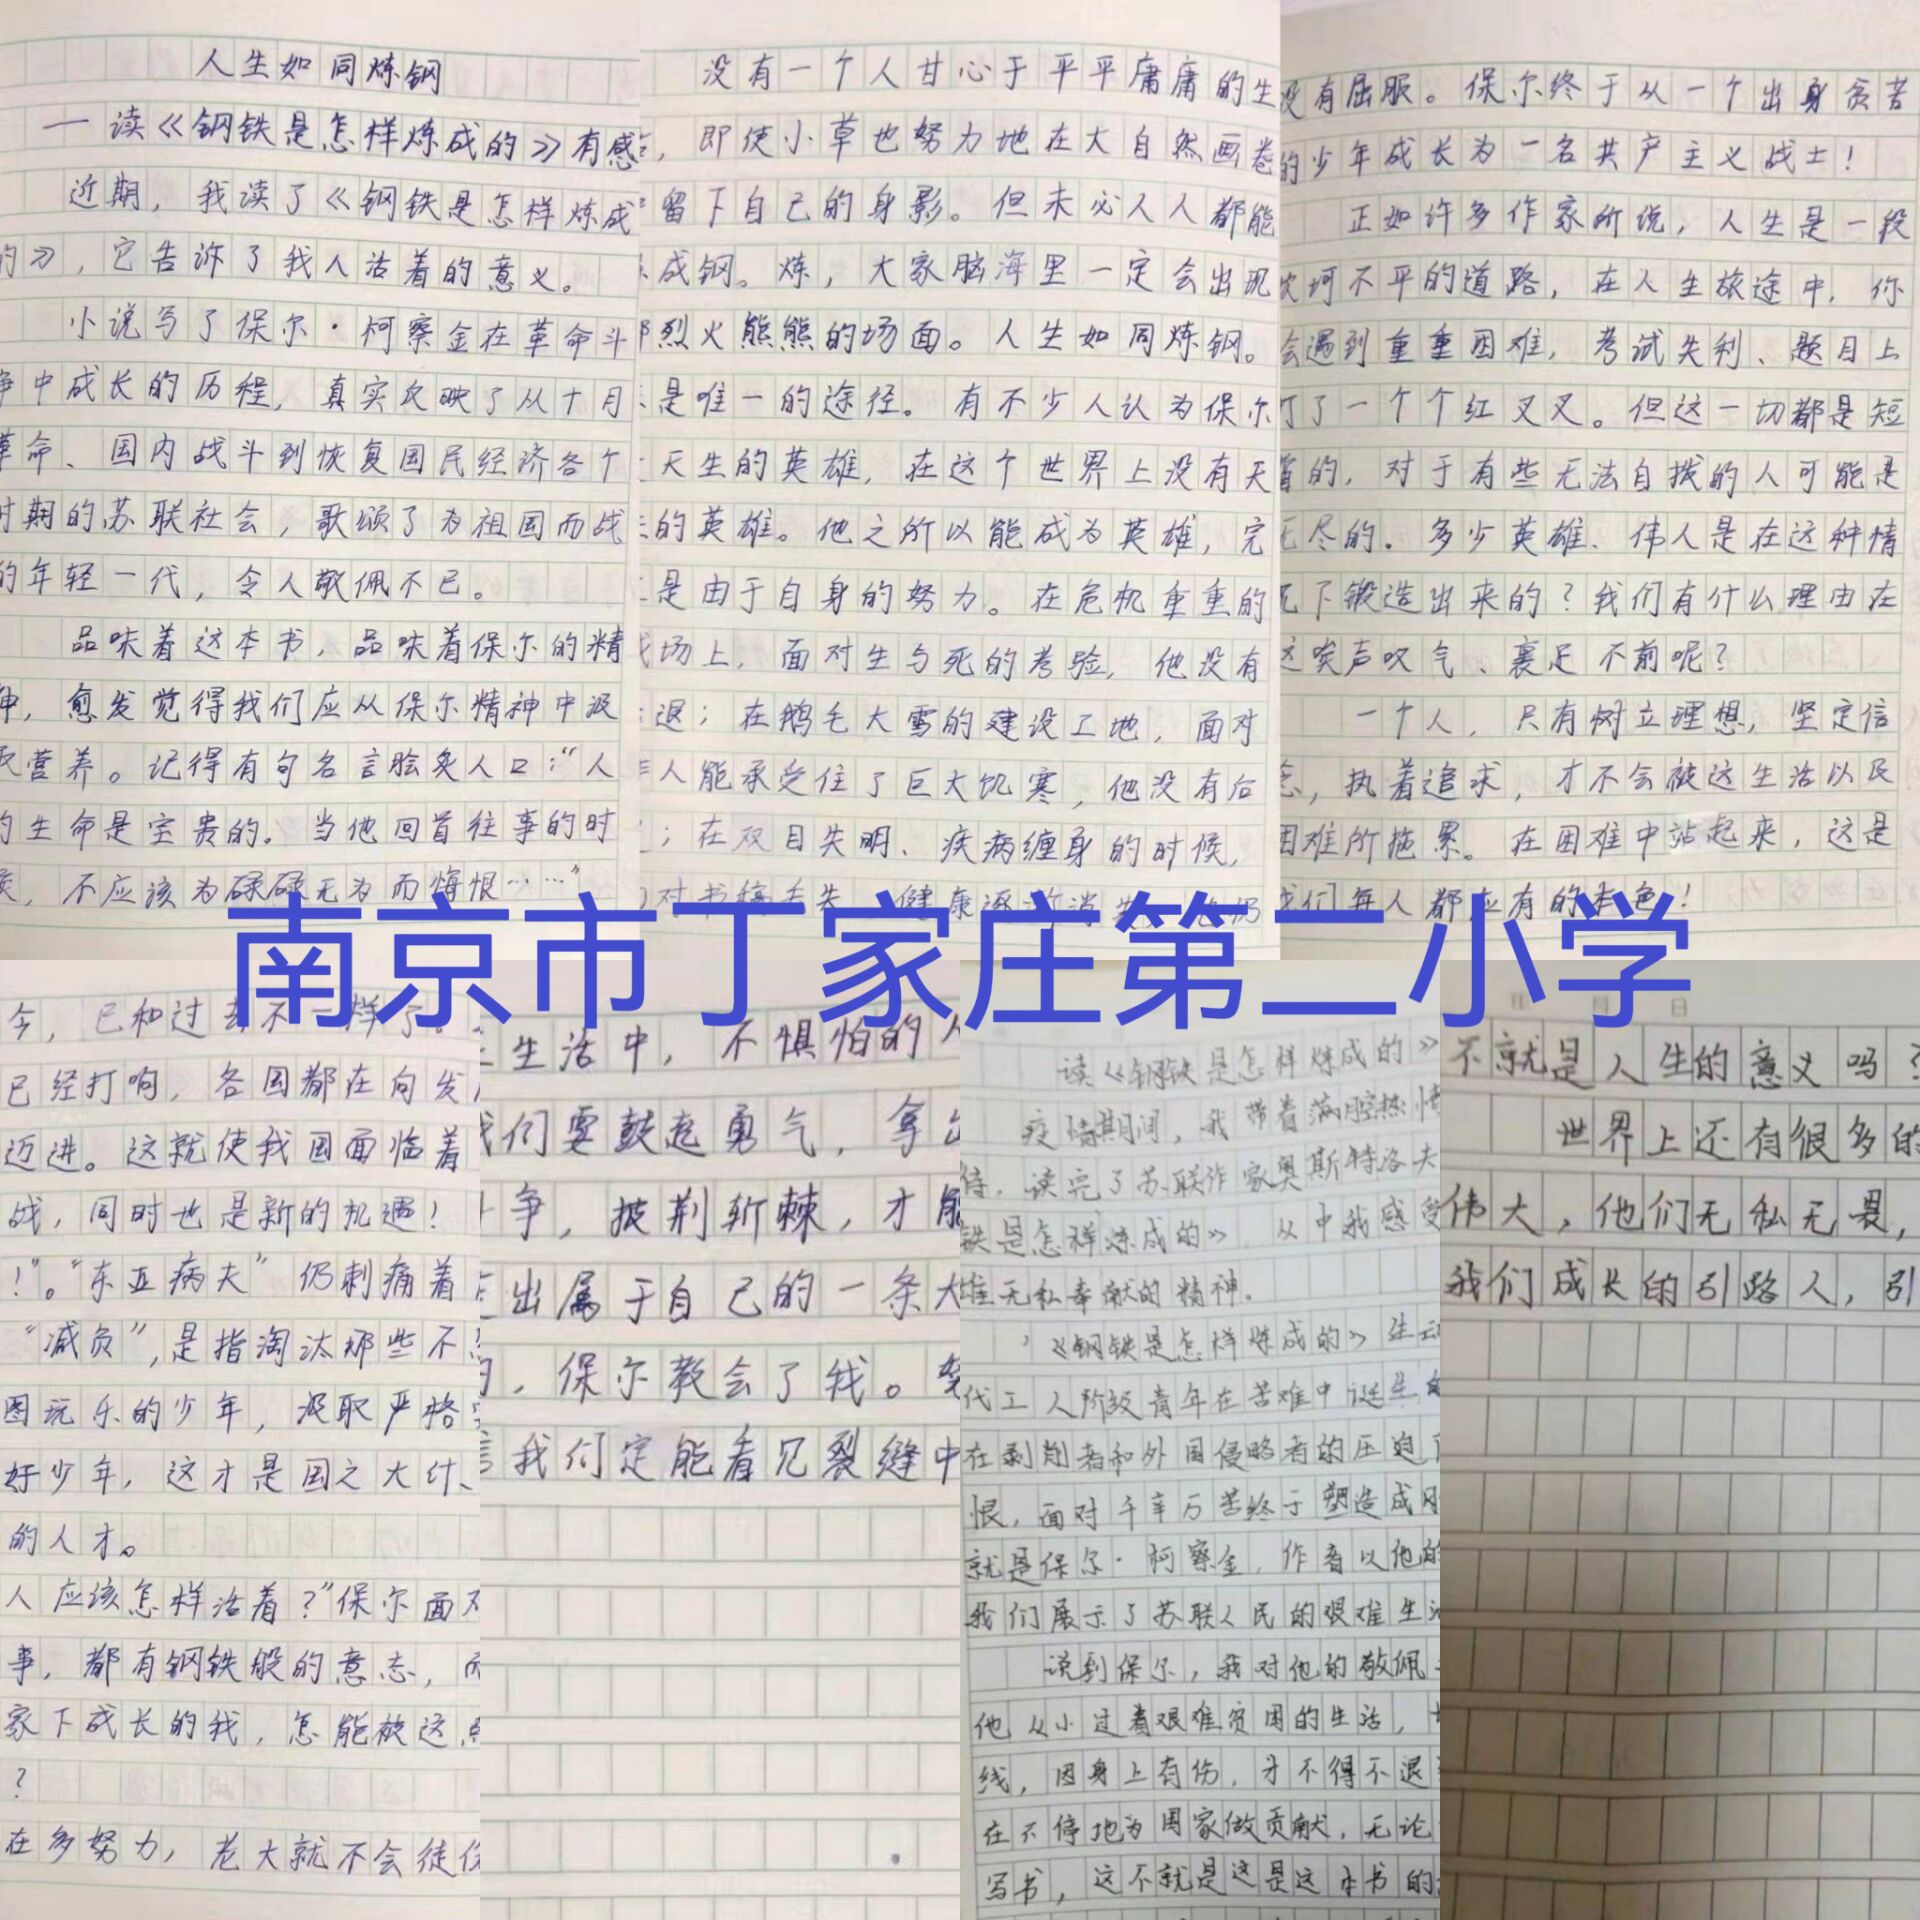 人生如同炼钢
一读《钢铁是怎样炼成的》有感
近期，我读了《钢铁是怎样炼成
的》，它告诉了我人活着的意义。
小说写了保尔·柯察金在革命斗
争中成长的历程，真实反映了从十月
革命、国内战斗到恢复国民经济各个
时期的苏联社会，歌颂了为祖国而战
的年轻一代，令人敬佩不已。
品味着这本书，品味着保尔的精
神，愈发觉得我们应从保尔精神中汲
取营养。记得有句名言脍炙人口：“人
的生命是宝贵的。当他回首往事的时
候，不应该为碌碌无为而悔恨……”
没有一个人甘心于平平庸庸的生
，即使小草也努力地在大自然画卷
留下自己的身影。但未必人人都能
成钢。炼，大家脑海里一定会出现
那烈火熊熊的场面。人生如同炼钢。
是唯一的途径。有不少人认为保尔
天生的英雄，在这个世界上没有天
生的英雄。他之所以能成为英雄，完
是由于自身的努力。在危机重重的
战场上，面对生与死的考验，他没有
退；在鹅毛大雪的建设工地，面对
人能承受住了巨大饥寒，他没有后
；在双目失明、疾病缠身的时候，
对书稿丢失、健康逐渐消失，他仍
没有屈服。保尔终于从一个出身贫苦
的少年成长为一名共产主义战士！
正如许多作家所说，人生是一段
坎坷不平的道路，在人生旅途中，你
会遇到重重困难，考试失利、题目上
打了一个个红叉叉。但这一切都是短
暂的，对于有些无法自拔的人可能是
无尽的。多少英雄、伟人是在这种情
况下锻造出来的？我们有什么理由在
这唉声叹气、裹足不前呢？
一个人，只有树立理想，坚定信
念，执着追求，才不会被这生活以及
困难所拖累。在困难中站起来，这是
我们每人都应有的本色！
南京市丁家庄第二小学
今，已和过去不一样了。
已经打响，各国都在向发
迈进。这就使我国面临着
战，同时也是新的机遇！
！”。“东亚病夫”仍刺痛着
“减负”，是指淘汰那些不
图玩乐的少年，汲取严格
好少年，这才是国之大计、
的人才。
人应该怎样活着？”保尔面对
事，都有钢铁般的意志，而
家下成长的我，怎能被这点
？
在多努力，老大就不会徒伤
生活中，不惧怕的人
我们要鼓起勇气，拿出
斗争，披荆斩棘，才能
走出属于自己的一条大
，保尔教会了我。
我们定能看见裂缝中
读《钢铁是怎样炼成的》
疫情期间，我带着满腔热情
待，读完了苏联作家奥斯特洛夫
铁是怎样炼成的》，从中我感受
雄无私奉献的精神。
《钢铁是怎样炼成的》生动
代工人阶级青年在苦难中诞生的
在剥削者和外国侵略者的压迫
恨，面对千辛万苦终于塑造成
就是保尔·柯察金，作者以他的
我们展示了苏联人民的艰难生活
说到保尔，我对他的敬佩
他从小过着艰难贫困的生活，
线，因身上有伤，才不得不退
在不停地为国家做贡献，无论
写书，这不就是这是这本书的
年 月 日
不就是人生的意义吗？
世界上还有很多的
伟大，他们无私无畏，
我们成长的引路人，引